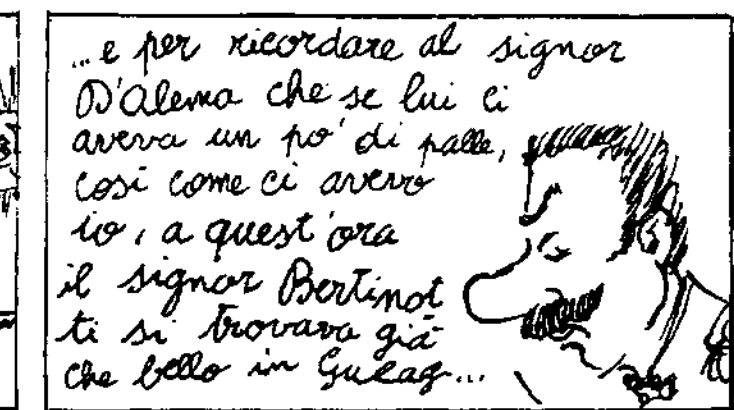 ...e per ricordare al signor
D'Alema che se lui ci
aveva un po' di palle,
così come ci avevo
io, a quest'ora
il signor Bertinot
ti si trovava già
che bello in Gulag...